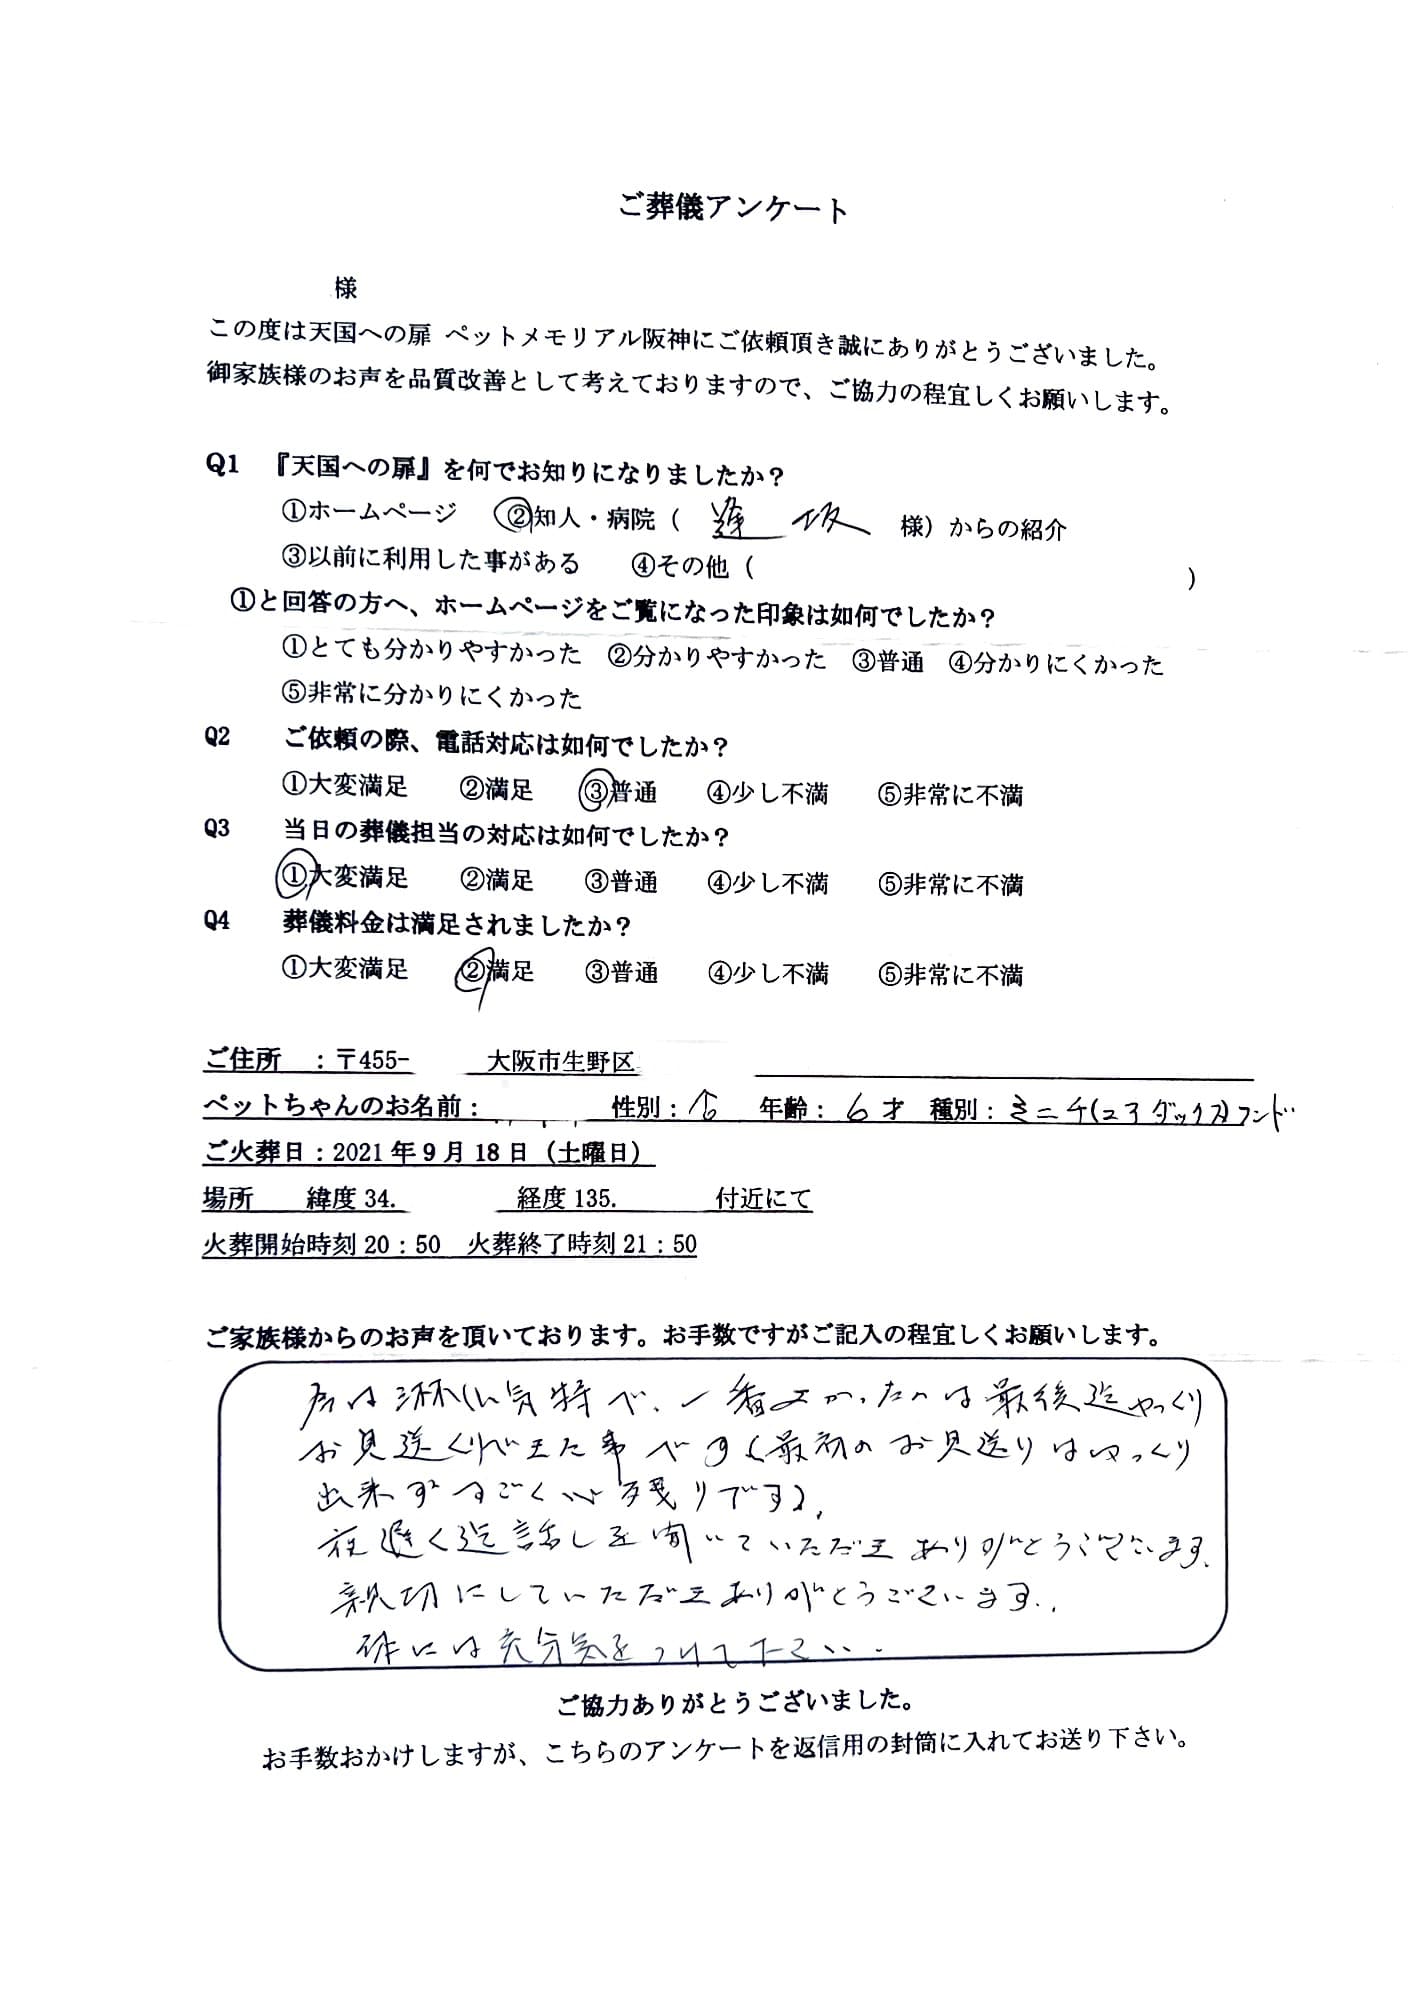 ご葬儀アンケート
様
この度は天国への扉 ペットメモリアル阪神にご依頼頂き誠にありがとうございました。
御家族様のお声を品質改善として考えておりますので、ご協力の程宜しくお願いします。
Q1 『天国への扉』を何でお知りになりましたか？
①ホームページ ②知人・病院（ 逢坂 様）からの紹介
③以前に利用した事がある ④その他（ ）
①と回答の方へ、ホームページをご覧になった印象は如何でしたか？
①とても分かりやすかった ②分かりやすかった ③普通 ④分かりにくかった
⑤非常に分かりにくかった
Q2 ご依頼の際、電話対応は如何でしたか？
①大変満足 ②満足 ③普通 ④少し不満 ⑤非常に不満
Q3 当日の葬儀担当の対応は如何でしたか？
①大変満足 ②満足 ③普通 ④少し不満 ⑤非常に不満
Q4 葬儀料金は満足されましたか？
①大変満足 ②満足 ③普通 ④少し不満 ⑤非常に不満
ご住所 ：〒455- 大阪市生野区
ペットちゃんのお名前： 性別： 年齢：6才 種別：ミニチュアダックスフンド
ご火葬日：2021年9月18日（土曜日）
場所 緯度34. 経度135. 付近にて
火葬開始時刻20：50 火葬終了時刻21：50
ご家族様からのお声を頂いております。お手数ですがご記入の程宜しくお願いします。
は淋しい気持で、一番よかったのは最後迄ゆっくり
お見送りができた事です（最初のお見送りはゆっくり
出来ずすごく心残りです）、
夜遅く迄話しを聞いていただきありがとうございます、
親切にしていただきありがとうございます、
体には充分気をつけて下さい。
ご協力ありがとうございました。
お手数おかけしますが、こちらのアンケートを返信用の封筒に入れてお送り下さい。